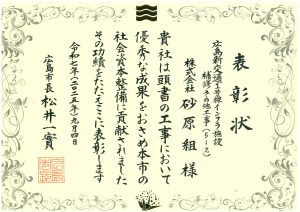 表彰状
広島新交通1号線インフラ施設
補修その他工事(5-2)
株式会社 砂原組 様
貴社は頭書の工事において
優秀な成果をおさめ本市の
社会資本整備に貢献されました
その功績をたたえここに表彰します
令和七年(二〇二五年)九月四日
広島市長 松井一實